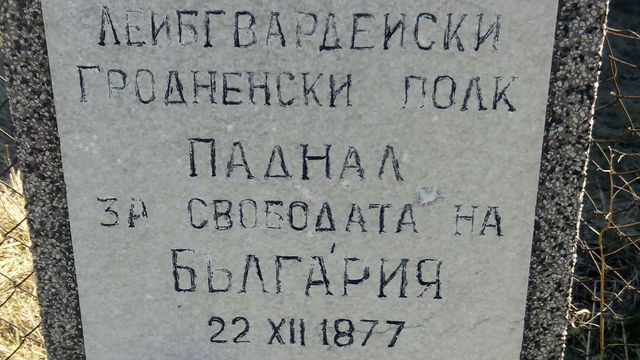 ЛЕИБГВАРДЕИСКИ
ГРОДНЕНСКИ ПОЛК
ПАДНАЛ
ЗА СВОБОДАТА НА
БЪЛГАРИЯ
22 XII 1877